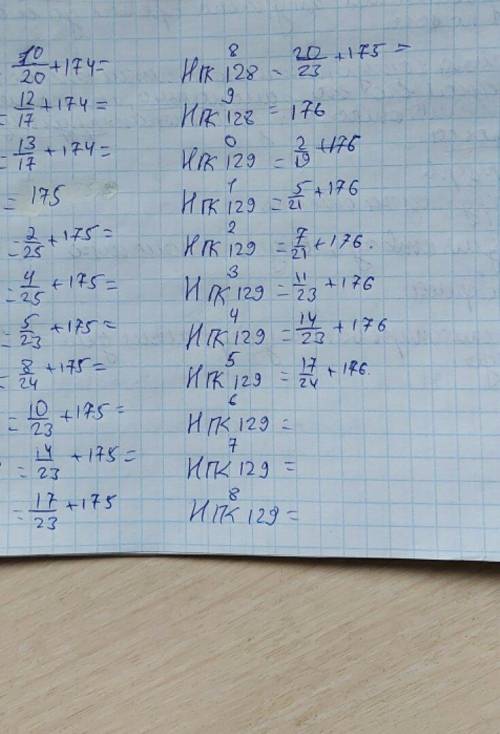 10/20 + 174 =
= 12/17 + 174 =
= 13/17 + 174 =
= 175
= 2/25 + 175 =
= 4/25 + 175 =
= 5/23 + 175 =
= 8/24 + 175 =
= 10/23 + 175 =
= 14/23 + 175 =
= 17/23 + 175
8
НПК 128 = 20/23 + 175 =
9
НПК 128 = 176
0
НПК 129 = 2/19 + 176
1
НПК 129 = 5/21 + 176
2
НПК 129 = 7/21 + 176.
3
НПК 129 = 11/23 + 176
4
НПК 129 = 14/23 + 176
5
НПК 129 = 17/24 + 176.
6
НПК 129 =
7
НПК 129 =
8
НПК 129 =